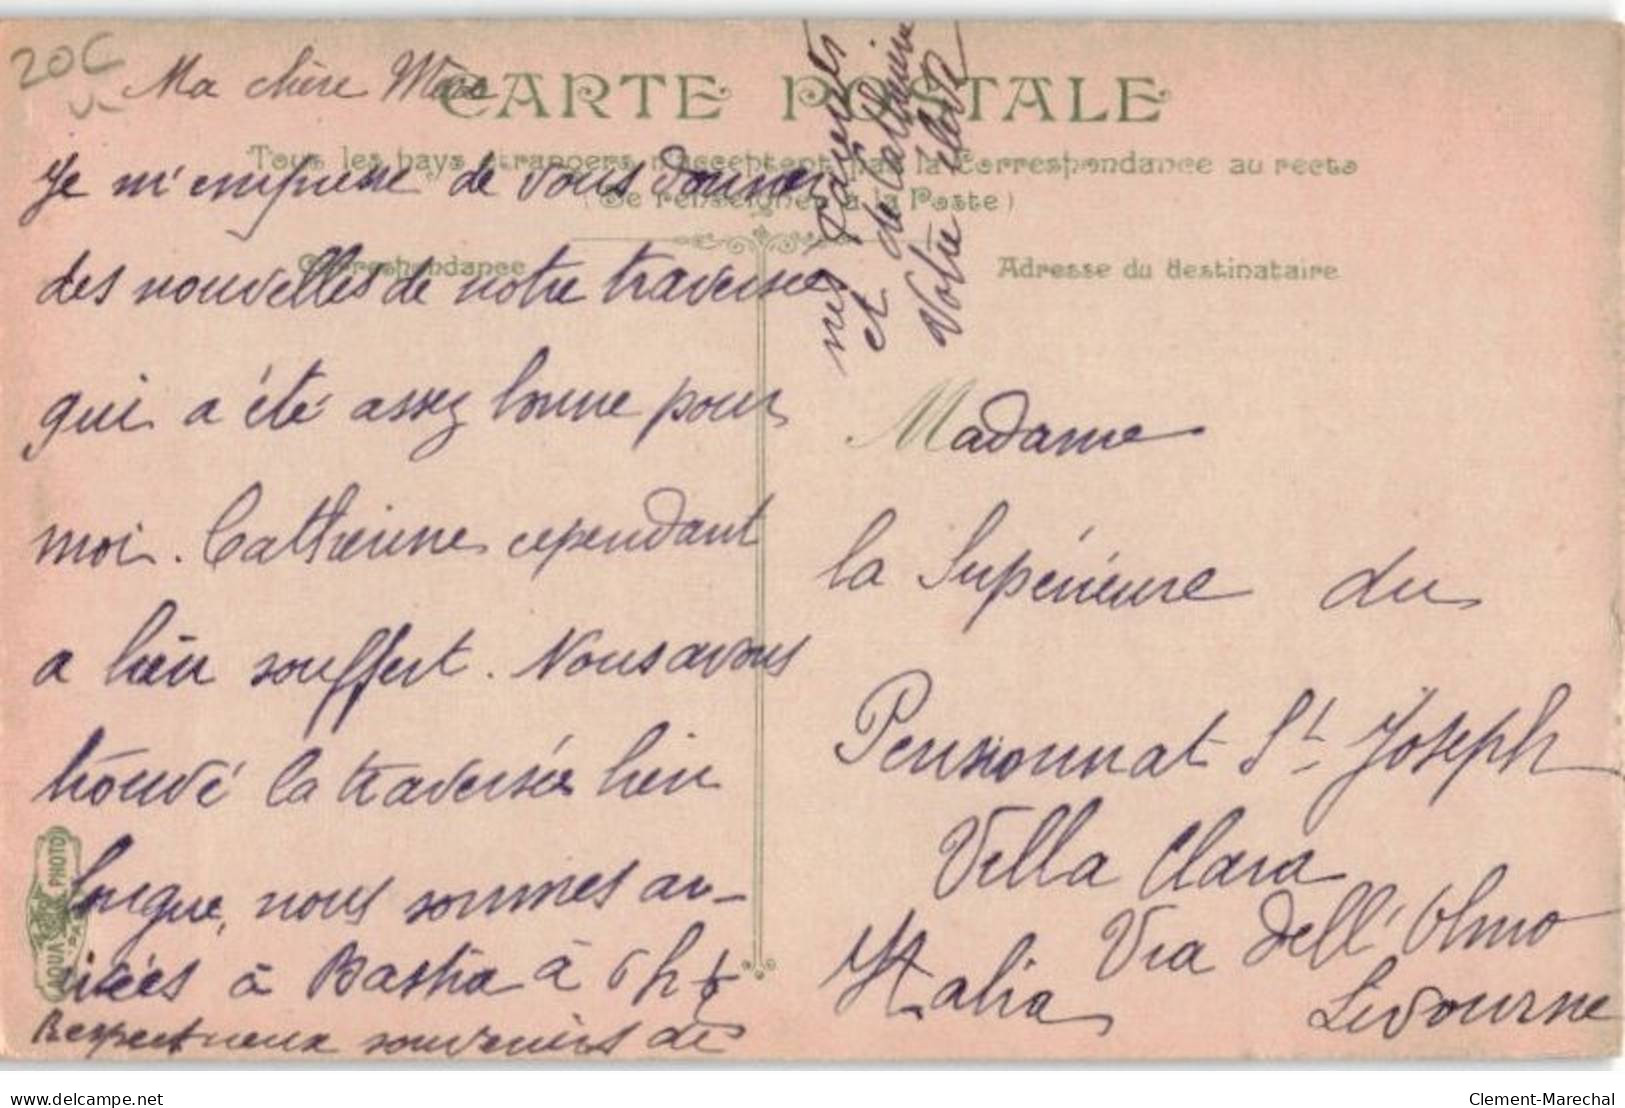 20c
Ma chère Mère
CARTE POSTALE
Tous les pays étrangers n'acceptent pas la Correspondance au recto
(Se renseigner à la Poste)
Correspondance
Adresse du destinataire
Je m'empresse de vous donner
des nouvelles de notre traversée
qui a été assez bonne pour
moi. Catherine cependant
a bien souffert. Nous avons
trouvé la traversée bien
longue, nous sommes ar-
rivées à Bastia à 6h
Respectueux souvenirs de
mes parents
et de Catherine
Votre
Madame
la Supérieure du
Pensionnat St Joseph
Villa Clara
Via dell'Olmo
Livourne
Italia
AQUA PHOTO
delcampe.net
Clement-Marechal